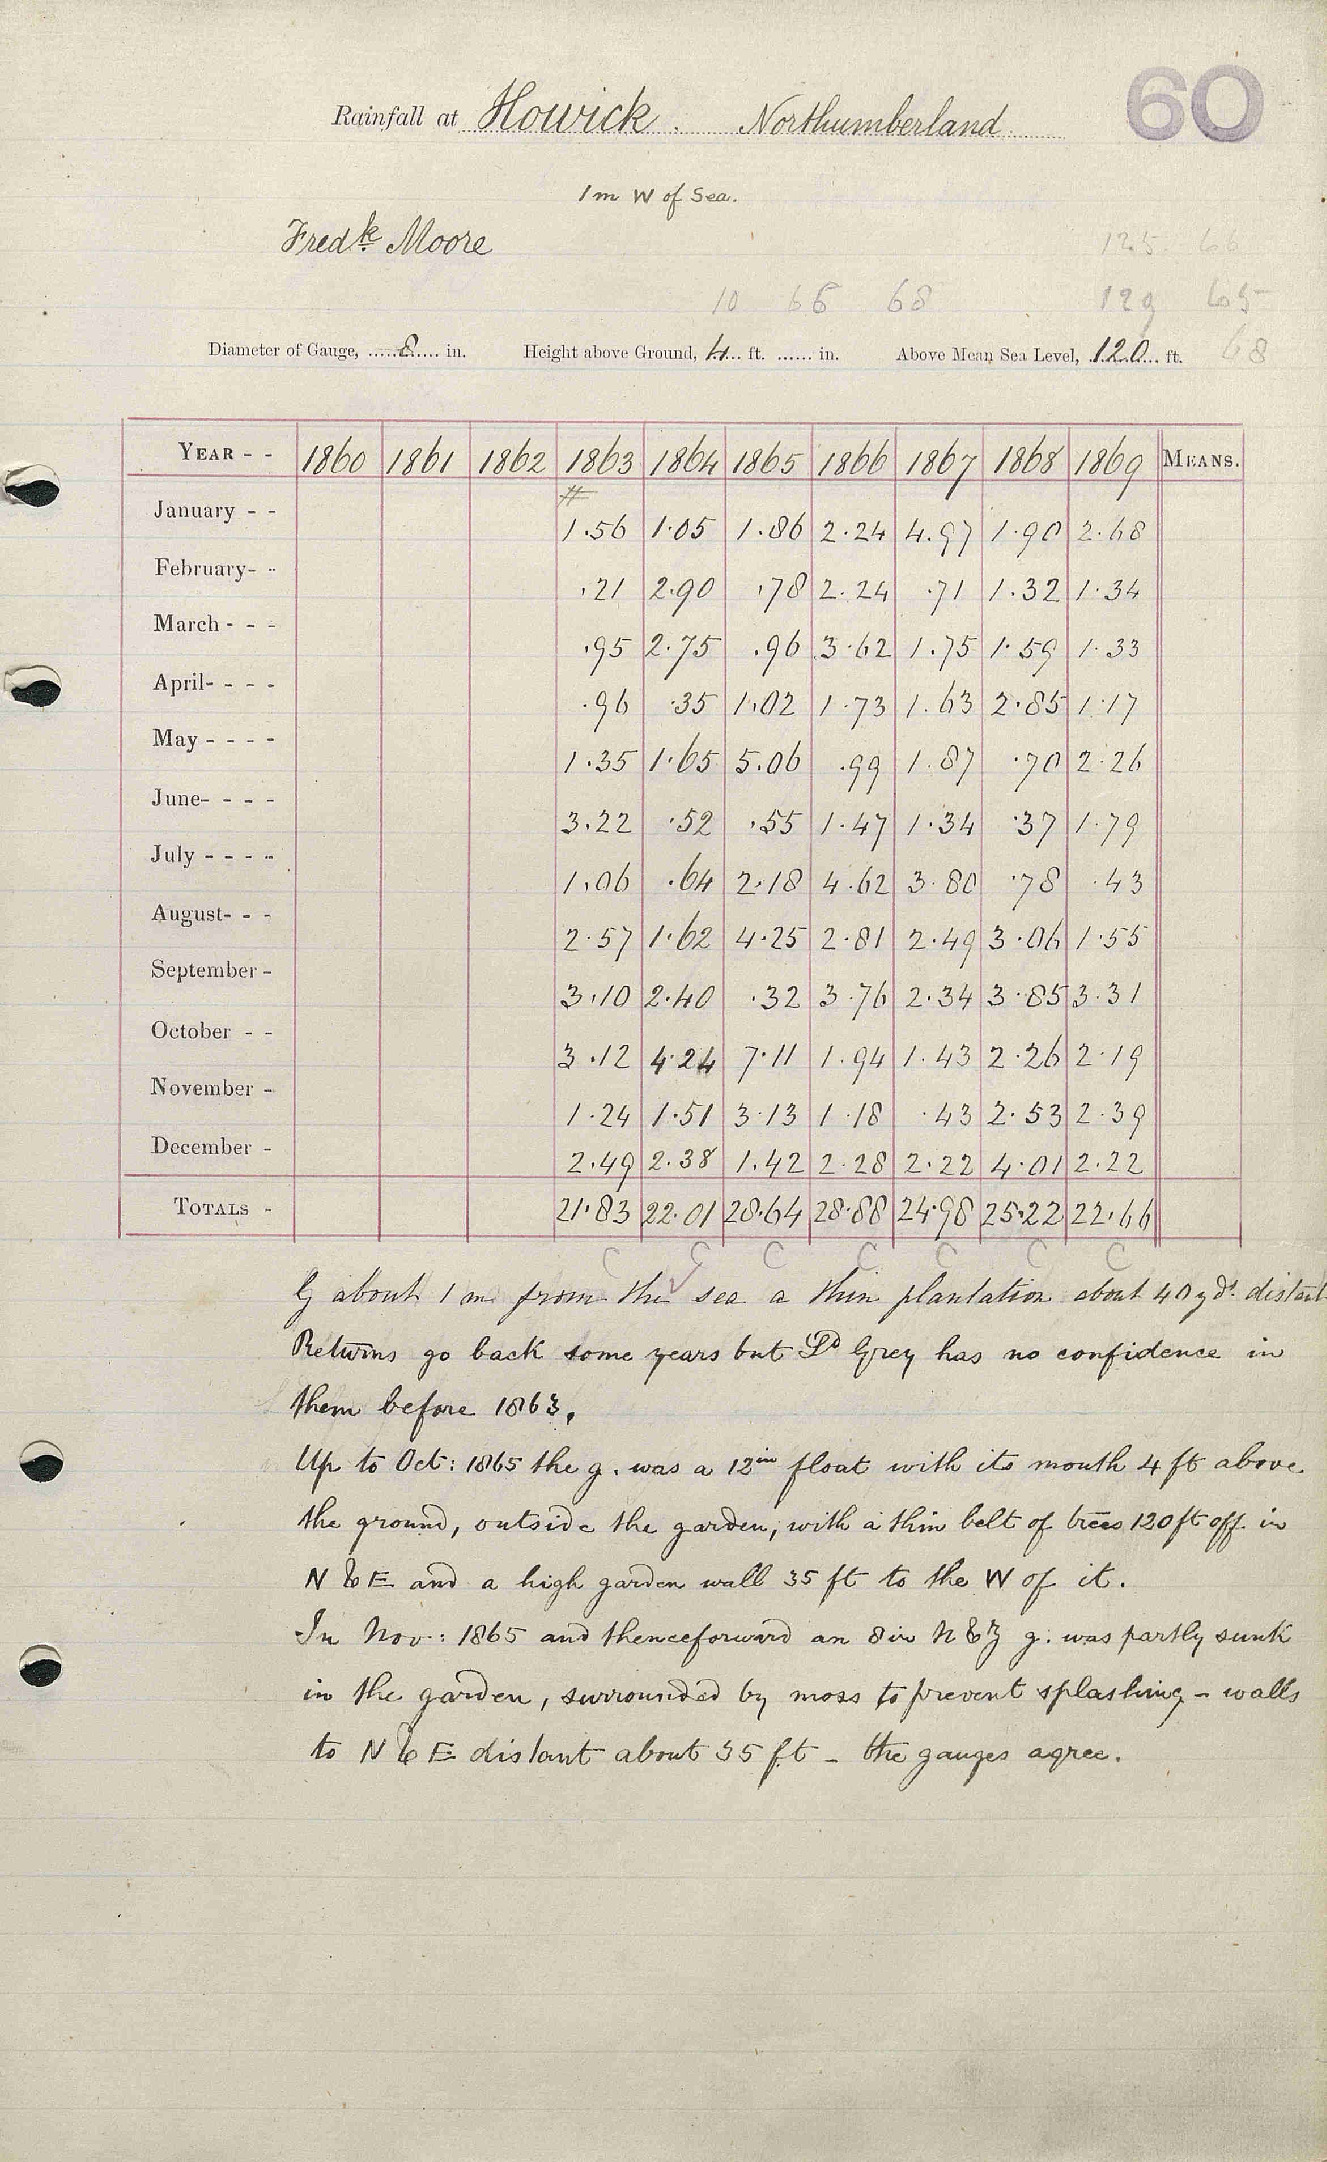 60
Rainfall at Howick. Northumberland.
1m W of Sea.
Fredk. Moore
125 66
10 66 68 129 65
Diameter of Gauge, 8 in. Height above Ground, 4 ft. in. Above Mean Sea Level, 120 ft. 68
YEAR - - 1860 1861 1862 1863 1864 1865 1866 1867 1868 1869 MEANS.
January - - 1.56 1.05 1.86 2.24 4.97 1.90 2.68
February- - .21 2.90 .78 2.24 .71 1.32 1.34
March - - - .95 2.75 .96 3.62 1.75 1.59 1.33
April- - - - .96 .35 1.02 1.73 1.63 2.85 1.17
May - - - - 1.35 1.65 5.06 .99 1.87 .70 2.26
June- - - - 3.22 .52 .55 1.47 1.34 .37 1.79
July - - - - 1.06 .64 2.18 4.62 3.80 .78 .43
August- - - 2.57 1.62 4.25 2.81 2.49 3.06 1.55
September - 3.10 2.40 .32 3.76 2.34 3.85 3.31
October - - 3.12 4.24 7.11 1.94 1.43 2.26 2.19
November - 1.24 1.51 3.13 1.18 .43 2.53 2.39
December - 2.49 2.38 1.42 2.28 2.22 4.01 2.22
TOTALS - 21.83 22.01 28.64 28.88 24.98 25.22 22.66
C C C C C C C
G about 1 m from the sea a thin plantation about 40 yds. distant
Returns go back some years but Ld Grey has no confidence in
them before 1863.
Up to Oct: 1865 the g. was a 12in float with its mouth 4 ft above
the ground, outside the garden, with a thin belt of trees 120 ft off in
N & E and a high garden wall 35 ft to the W of it.
In Nov: 1865 and thenceforward an 8 in N & Z g. was partly sunk
in the garden, surrounded by moss to prevent splashing - walls
to N & E distant about 35 ft - the gauges agree.